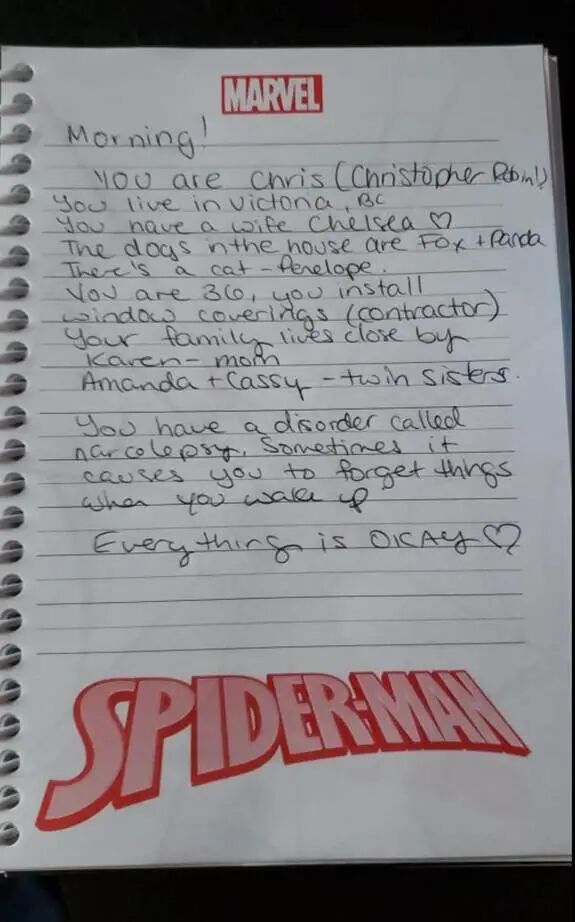 MARVEL
Morning!
You are Chris (Christopher Robin!)
You live in Victoria, BC
You have a wife Chelsea ♡
The dogs in the house are Fox + Panda
There's a cat - Penelope.
You are 36, you install
window coverings (contractor)
Your family lives close by
Karen - mom
Amanda + Cassy - twin sisters.
You have a disorder called
narcolepsy, Sometimes it
causes you to forget things
when you wake up
Everything is OKAY ♡
SPIDER-MAN